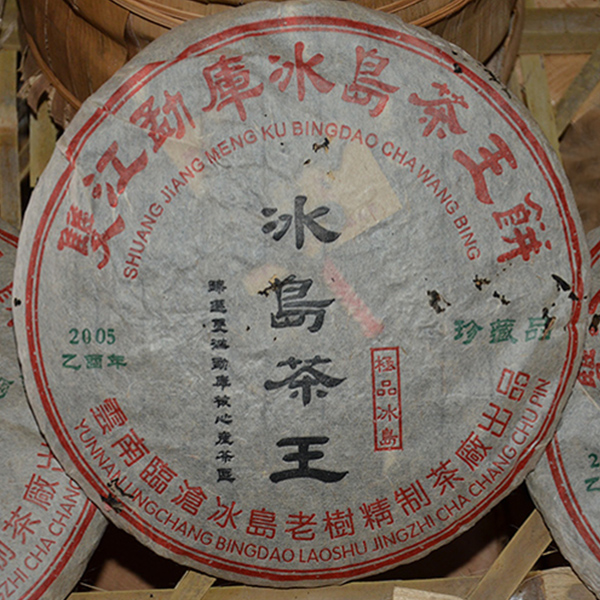 雙江勐庫冰島茶王餅
SHUANG JIANG MENG KU BINGDAO CHA WANG BING
冰島茶王
臻選雙江勐庫核心產茶區
極品冰島
2005
乙酉年
珍藏品
雲南臨滄冰島老樹精制茶廠出品
YUNNANLINGCHANG BINGDAO LAOSHU JINGZHI CHA CHANG CHU PIN